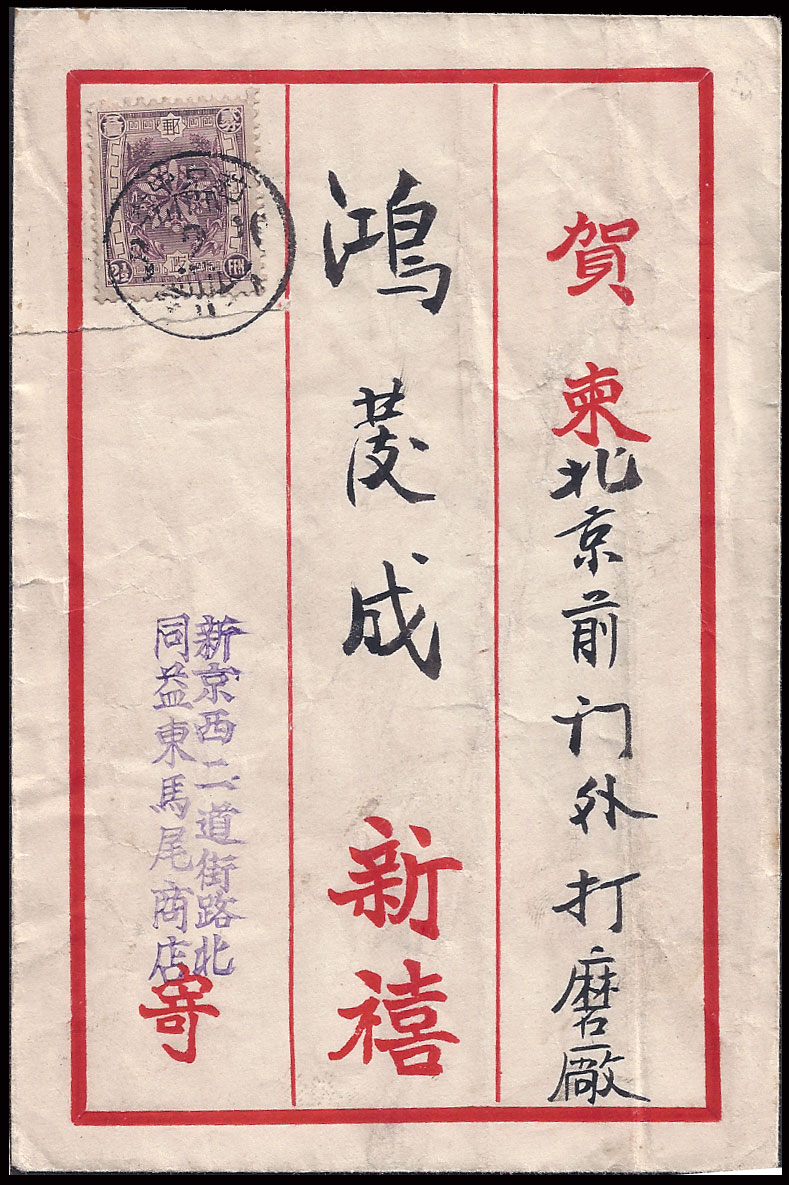 賀柬
北京前门外打磨廠
鴻發成
新禧
新京西二道街路北
同益東馬尾商店
寄
郵
票
2½ FEN